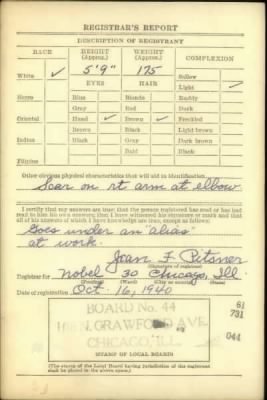 REGISTRAR'S REPORT
DESCRIPTION OF REGISTRANT
RACE HEIGHT (Approx.) WEIGHT (Approx.) COMPLEXION
White ✓ 5'9" 175 Sallow
EYES HAIR Light ✓
Negro Blue Blonde Ruddy
Gray Red Dark
Oriental Hazel ✓ Brown ✓ Freckled
Brown Black Light brown
Indian Black Gray Dark brown
Bald Black
Filipino
Other obvious physical characteristics that will aid in identification
Scar on rt arm at elbow
I certify that my answers are true; that the person registered has read or has had
read to him his own answers; that I have witnessed his signature or mark and that
all of his answers of which I have knowledge are true, except as follows:
Goes under an "alias"
at work.
Joan F. Pitsner
(Signature of registrar)
Registrar for Nobel 30 Chicago, Ill.
(Precinct) (Ward) (City or county) (State)
Date of registration Oct. 16, 1940
BOARD No. 44 61
731
N. CRAWFORD AVE.
CHICAGO, ILL. 044
STAMP OF LOCAL BOARD
(The stamp of the Local Board having jurisdiction of the registrant
shall be placed in the above space.)